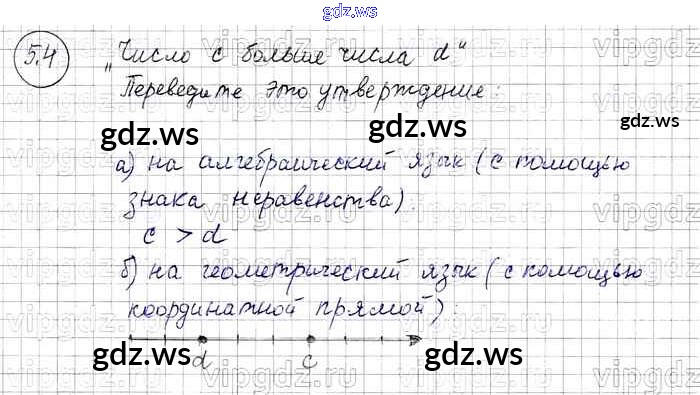 gdz.ws
5.4
„Число с больше числа d“
Переведите это утверждение:
gdz.ws
gdz.ws
а) на алгебраический язык (с помощью
знака неравенства).
c > d
б) на геометрический язык (с помощью
координатной прямой):
d c
gdz.ws
gdz.ws